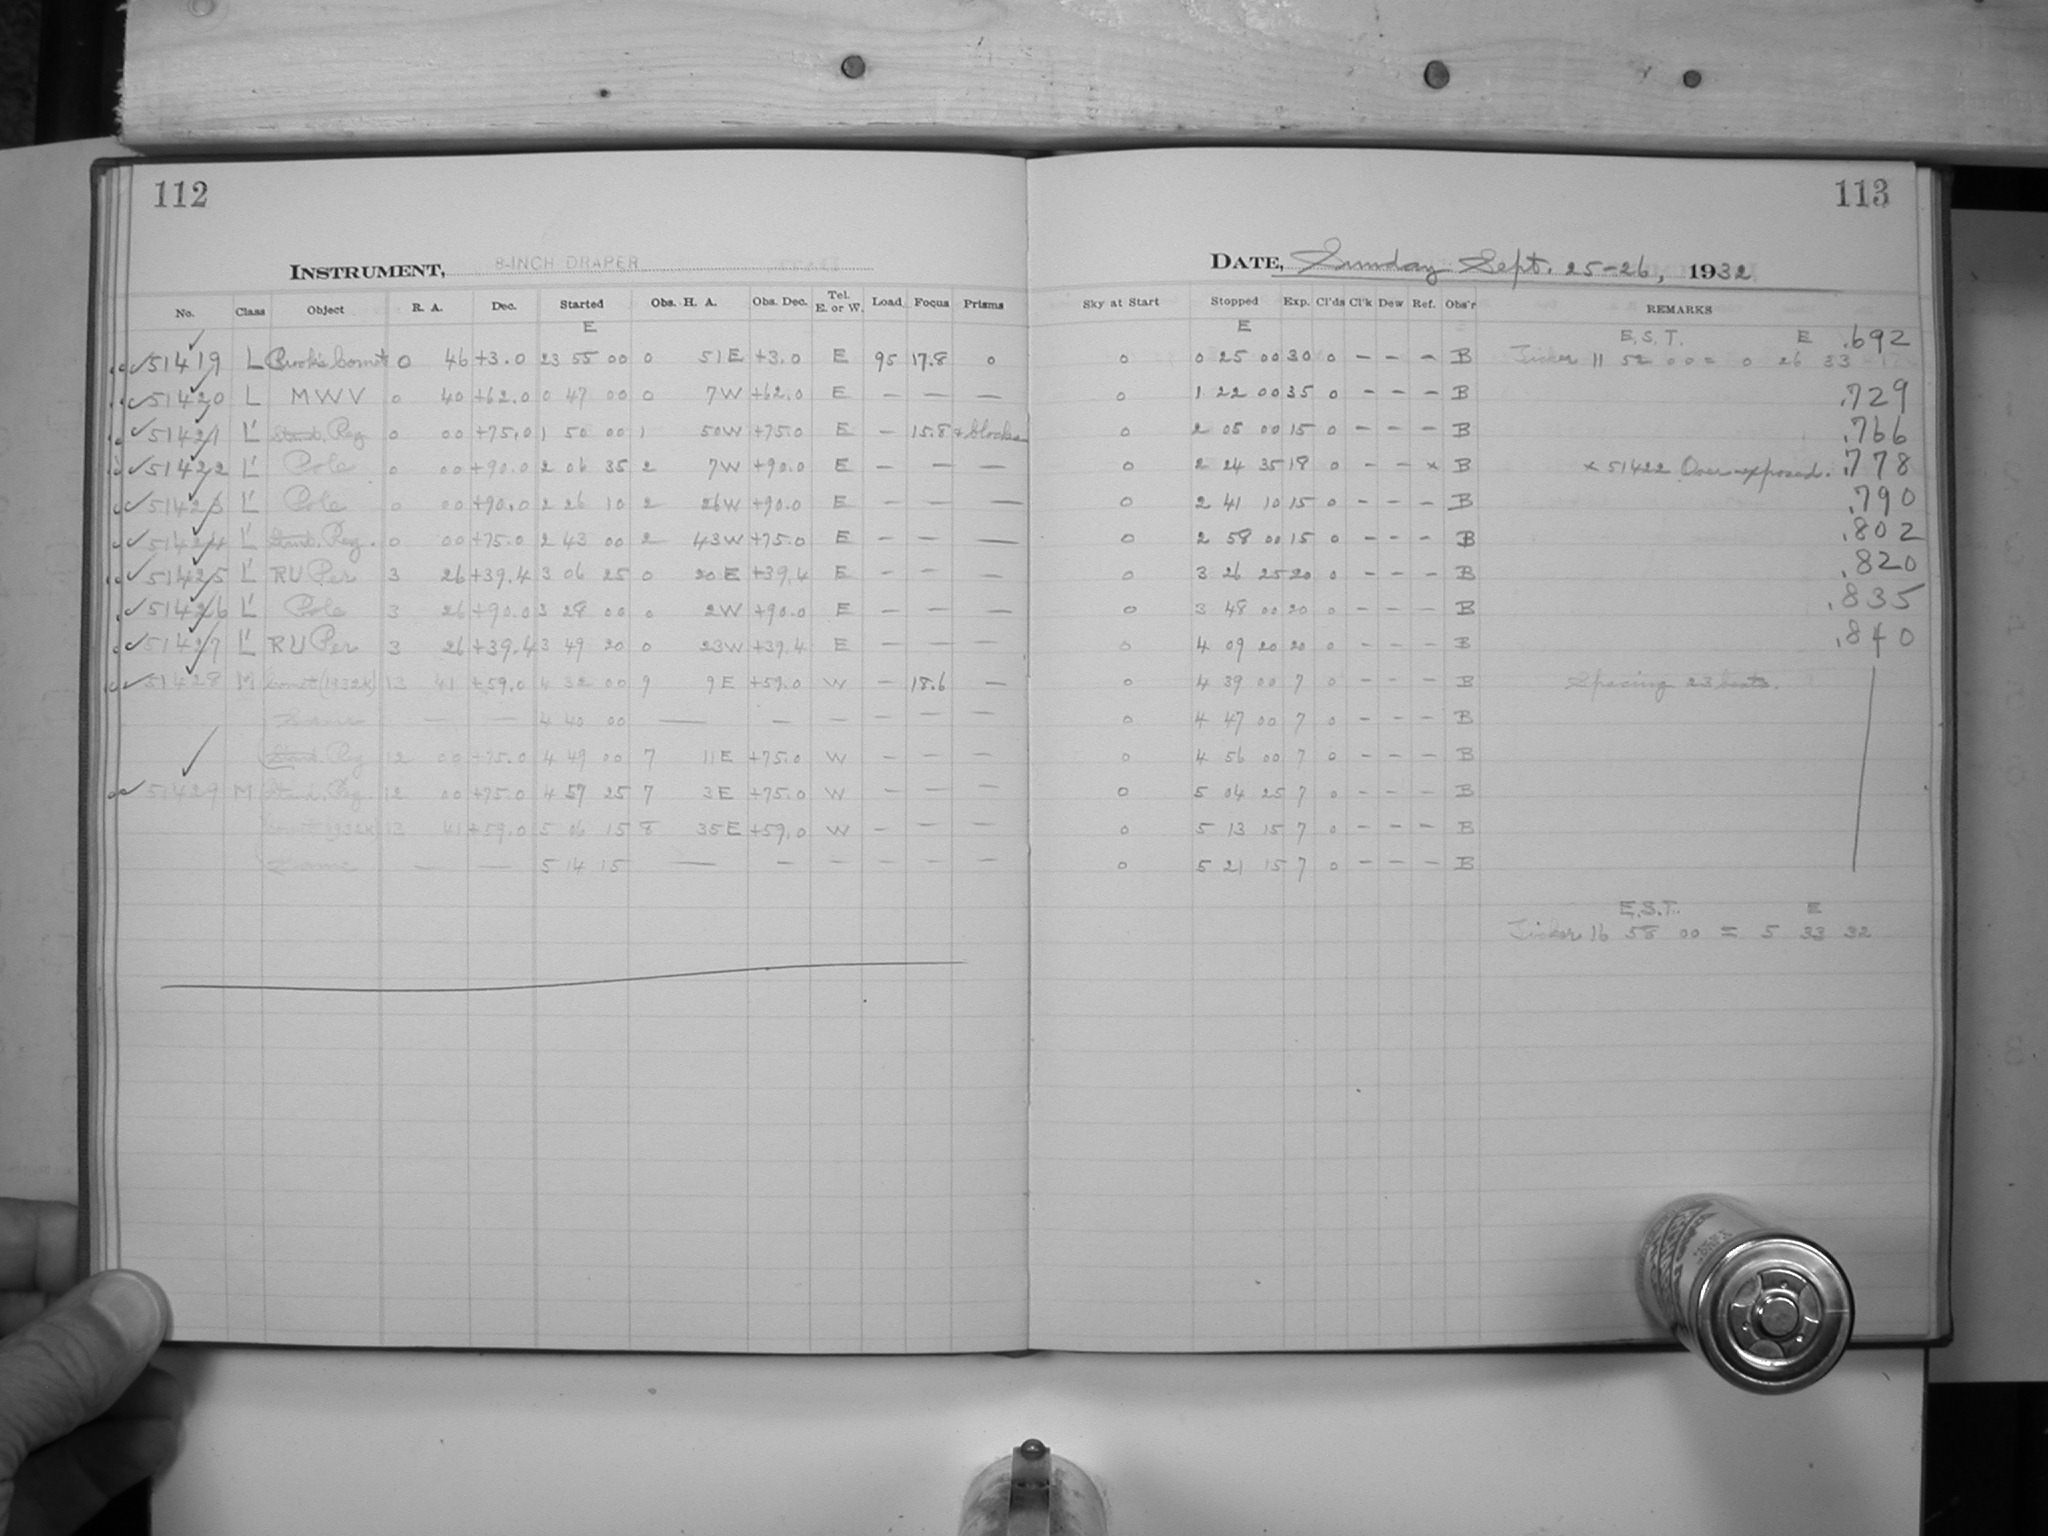 112
INSTRUMENT, 8-INCH DRAPER
No. Class Object R. A. Dec. Started Obs. H. A. Obs. Dec. Tel. E. or W. Load Focus Prisms
E
51419 L Brooks Comet 0 46 +3.0 23 55 00 0 51 E +3.0 E 95 17.8 0
51420 L MWV 0 40 +62.0 0 47 00 0 7 W +62.0 E — — —
51421 L' Stand. Reg 0 00 +75.0 1 50 00 1 50 W +75.0 E — 15.8 + blocks
51422 L' Pole 0 00 +90.0 2 06 35 2 7 W +90.0 E — — —
51423 L' Pole 0 00 +90.0 2 26 10 2 26 W +90.0 E — — —
51424 L' Stand. Reg. 0 00 +75.0 2 43 00 2 43 W +75.0 E — — —
51425 L' RU Per 3 26 +39.4 3 06 25 0 20 E +39.4 E — — —
51426 L' Pole 3 26 +90.0 3 28 00 0 2 W +90.0 E — — —
51427 L' RU Per 3 26 +39.4 3 49 20 0 23 W +39.4 E — — —
51428 M Comet (1932k) 13 41 +59.0 4 32 00 9 9 E +59.0 W — 18.6 —
Same — — 4 40 00 — — — — — —
Stand. Reg 12 00 +75.0 4 49 00 7 11 E +75.0 W — — —
51429 M Stand. Reg. 12 00 +75.0 4 57 25 7 3 E +75.0 W — — —
Comet (1932k) 13 41 +59.0 5 06 15 8 35 E +59.0 W — — —
Same — — 5 14 15 — — — — — —
113
DATE, Sunday Sept. 25-26, 1932
Sky at Start Stopped Exp. Cl'ds Cl'k Dew Ref. Obs'r REMARKS
E E.S.T. E .692
0 0 25 00 30 0 – – – B Ticker 11 52 00 = 0 26 33
0 1 22 00 35 0 – – – B .729
0 2 05 00 15 0 – – – B .766
0 2 24 35 18 0 – – x B x 51422 Over-exposed. .778
0 2 41 10 15 0 – – – B .790
0 2 58 00 15 0 – – – B .802
0 3 26 25 20 0 – – – B .820
0 3 48 00 20 0 – – – B .835
0 4 09 20 20 0 – – – B .840
0 4 39 00 7 0 – – – B Spacing 23 beats.
0 4 47 00 7 0 – – – B
0 4 56 00 7 0 – – – B
0 5 04 25 7 0 – – – B
0 5 13 15 7 0 – – – B
0 5 21 15 7 0 – – – B
E.S.T. E
Ticker 16 58 00 = 5 33 32